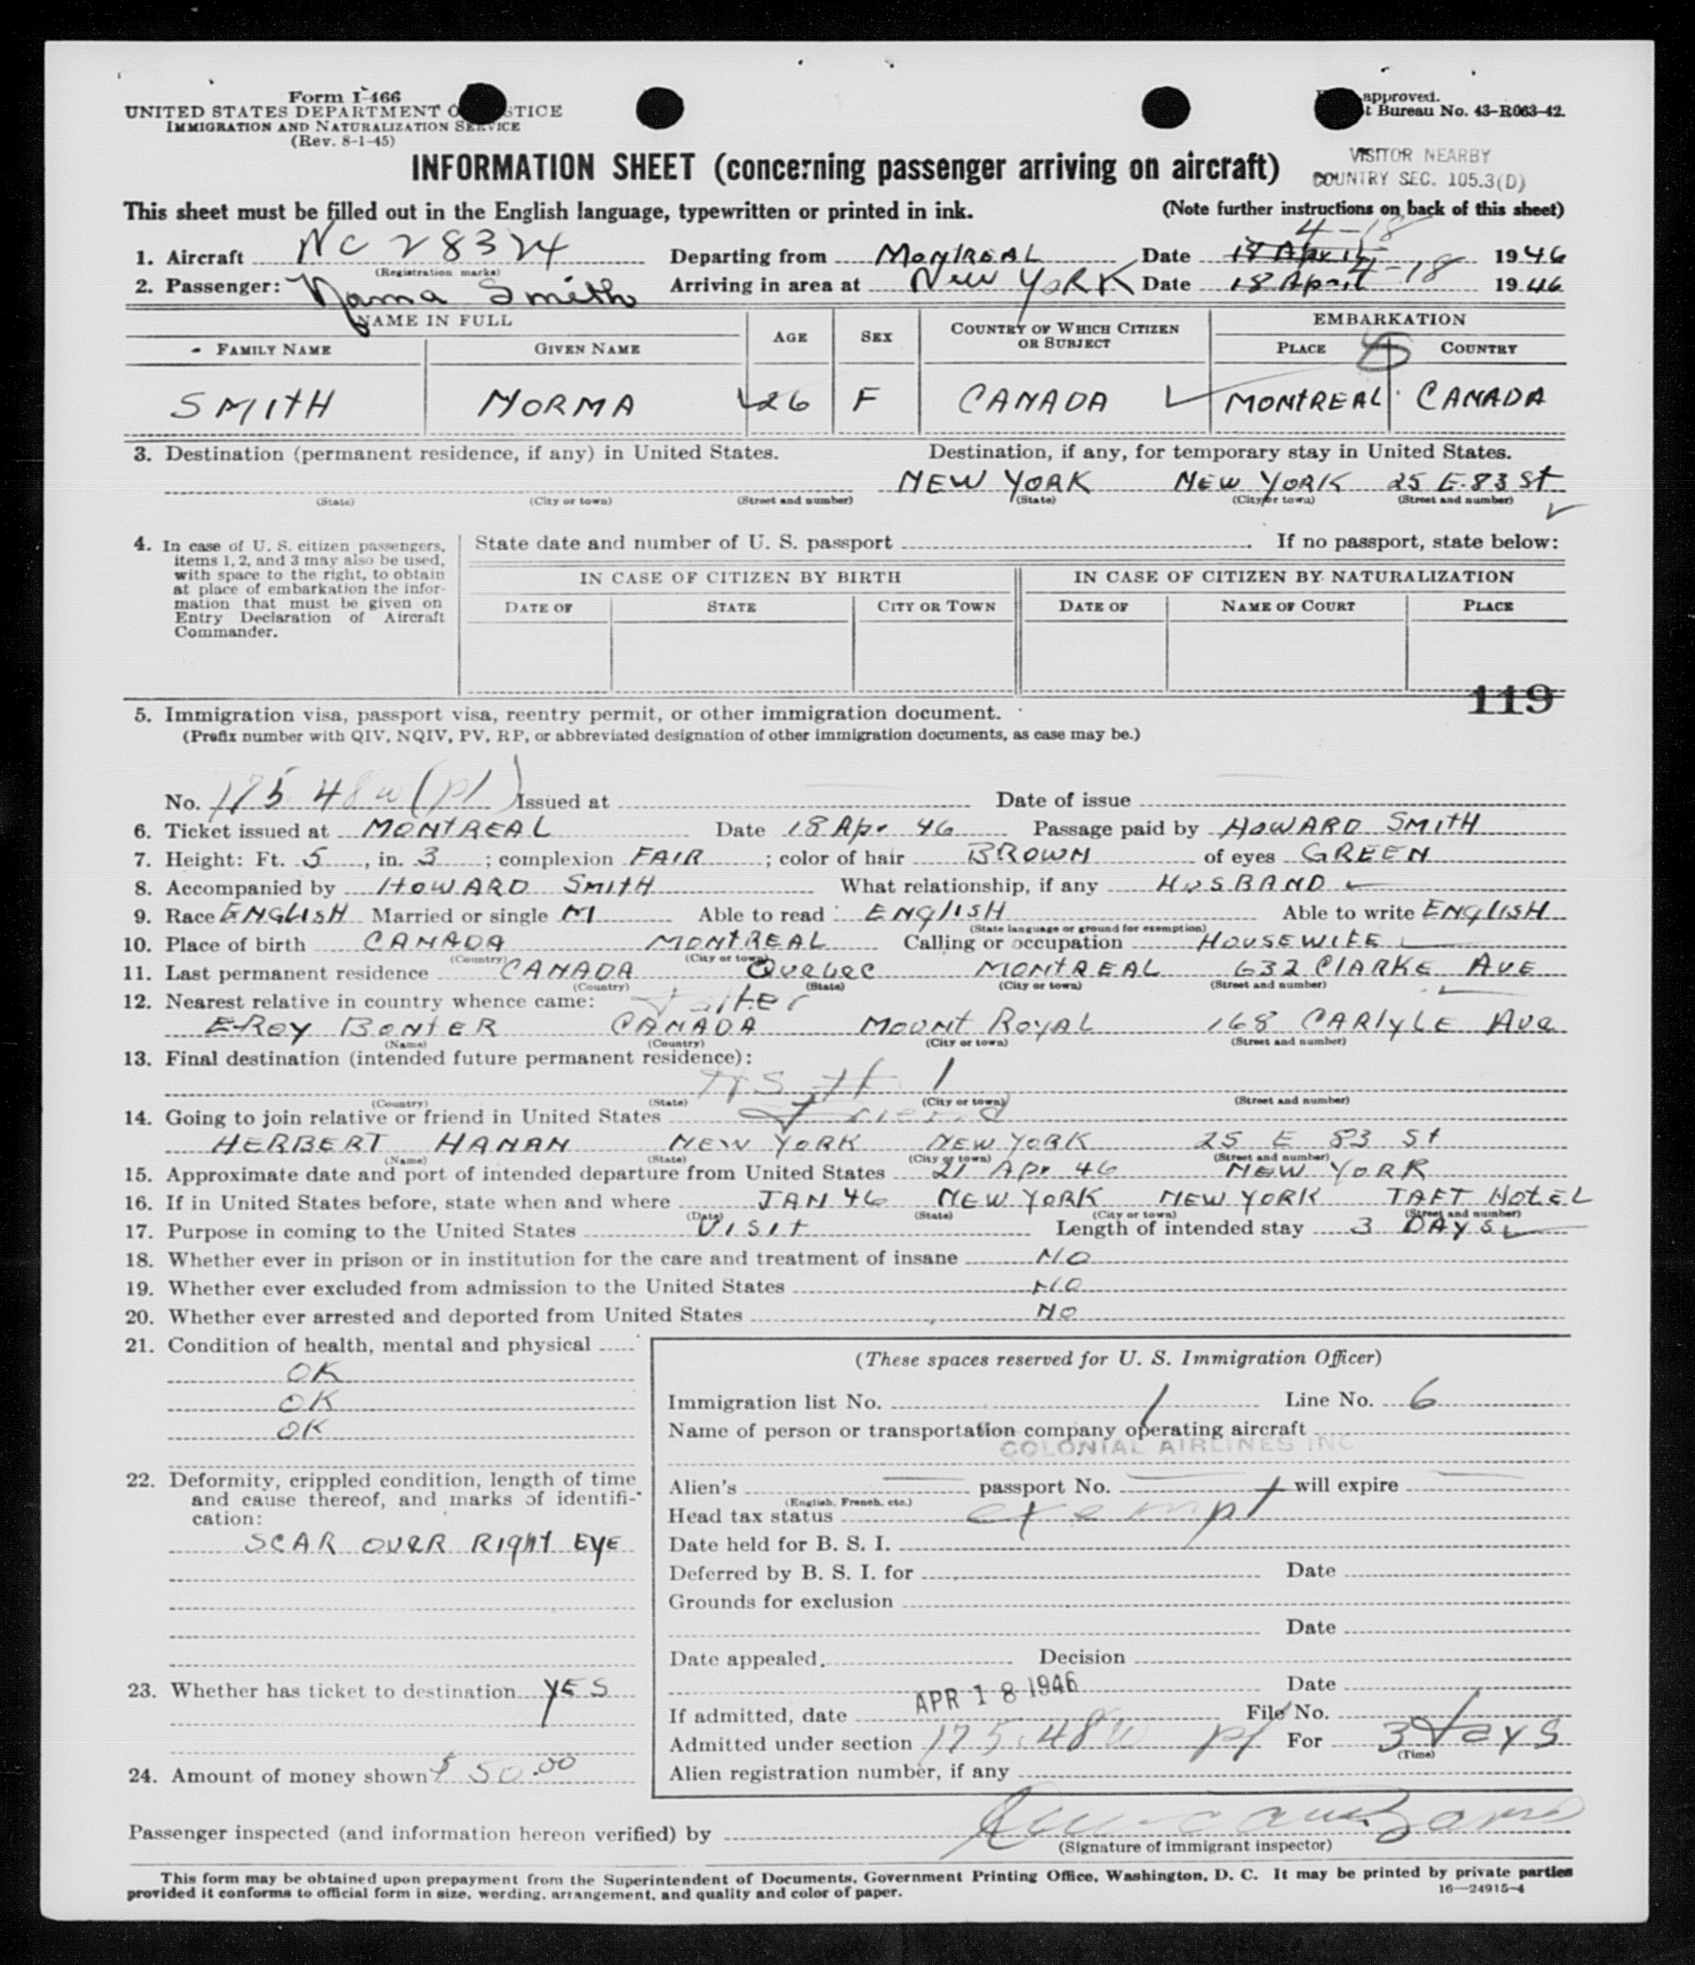 Form I-466
UNITED STATES DEPARTMENT O STICE
IMMIGRATION AND NATURALIZATION SERVICE
(Rev. 8-1-45)
approved.
t Bureau No. 43-R063-42.
INFORMATION SHEET (concerning passenger arriving on aircraft)
VISITOR NEARBY
COUNTRY SEC. 105.3(D)
This sheet must be filled out in the English language, typewritten or printed in ink. (Note further instructions on back of this sheet)
4-18
1. Aircraft NC 28324 Departing from MONTREAL Date 18 Apr 1946
(Registration marks)
2. Passenger: Norma Smith Arriving in area at New YORK Date 18 April 4-18 1946
NAME IN FULL AGE SEX COUNTRY OF WHICH CITIZEN OR SUBJECT EMBARKATION
FAMILY NAME GIVEN NAME PLACE COUNTRY
SMITH NORMA 26 F CANADA MONTREAL CANADA
3. Destination (permanent residence, if any) in United States. Destination, if any, for temporary stay in United States.
NEW YORK NEW YORK 25 E. 83 St
(State) (City or town) (Street and number) (State) (City or town) (Street and number)
4. In case of U. S. citizen passengers, items 1, 2, and 3 may also be used, with space to the right, to obtain at place of embarkation the information that must be given on Entry Declaration of Aircraft Commander.
State date and number of U. S. passport If no passport, state below:
IN CASE OF CITIZEN BY BIRTH IN CASE OF CITIZEN BY NATURALIZATION
DATE OF STATE CITY OR TOWN DATE OF NAME OF COURT PLACE
119
5. Immigration visa, passport visa, reentry permit, or other immigration document.
(Prefix number with QIV, NQIV, PV, RP, or abbreviated designation of other immigration documents, as case may be.)
No. 175 48w (pl) Issued at Date of issue
6. Ticket issued at MONTREAL Date 18 Apr 46 Passage paid by HOWARD SMITH
7. Height: Ft. 5, in. 3; complexion FAIR; color of hair BROWN of eyes GREEN
8. Accompanied by HOWARD SMITH What relationship, if any HUSBAND
9. Race ENGLISH Married or single M Able to read ENGlISH Able to write ENGlISH
(State language or ground for exemption)
10. Place of birth CANADA MONTREAL Calling or occupation HOUSEWIFE
(Country) (City or town)
11. Last permanent residence CANADA Quebec MONTREAL 632 ClARKE AVE
(Country) (State) (City or town) (Street and number)
12. Nearest relative in country whence came: Father
E-Roy BONTER CANADA MOUNT ROYAL 168 CARlyLE AVe
(Name) (Country) (City or town) (Street and number)
13. Final destination (intended future permanent residence):
(Country) (State) (City or town) (Street and number)
14. Going to join relative or friend in United States Friend
HERBERT HANAN NEW YORK NEW YORK 25 E 83 St
(Name) (State) (City or town) (Street and number)
15. Approximate date and port of intended departure from United States 21 Apr 46 NEW YORK
16. If in United States before, state when and where JAN 46 NEW YORK NEW YORK TAFT HOtEL
(Date) (State) (City or town) (Street and number)
17. Purpose in coming to the United States VISIt Length of intended stay 3 DAYS
18. Whether ever in prison or in institution for the care and treatment of insane NO
19. Whether ever excluded from admission to the United States NO
20. Whether ever arrested and deported from United States NO
21. Condition of health, mental and physical
OK
OK
OK
22. Deformity, crippled condition, length of time and cause thereof, and marks of identification:
SCAR OVER RIGHT EYE
23. Whether has ticket to destination YES
24. Amount of money shown $ 50.00
(These spaces reserved for U. S. Immigration Officer)
Immigration list No. 1 Line No. 6
Name of person or transportation company operating aircraft
COLONIAL AIRLINES INC
Alien's passport No. will expire
(English, French, etc.)
Head tax status exempt
Date held for B. S. I.
Deferred by B. S. I. for Date
Grounds for exclusion
Date
Date appealed Decision
Date
If admitted, date APR 18 1946 File No.
Admitted under section 175.48w pl For 3 days
(Time)
Alien registration number, if any
Passenger inspected (and information hereon verified) by
(Signature of immigrant inspector)
This form may be obtained upon prepayment from the Superintendent of Documents, Government Printing Office, Washington, D. C. It may be printed by private parties
provided it conforms to official form in size, wording, arrangement, and quality and color of paper.
16—24915-4